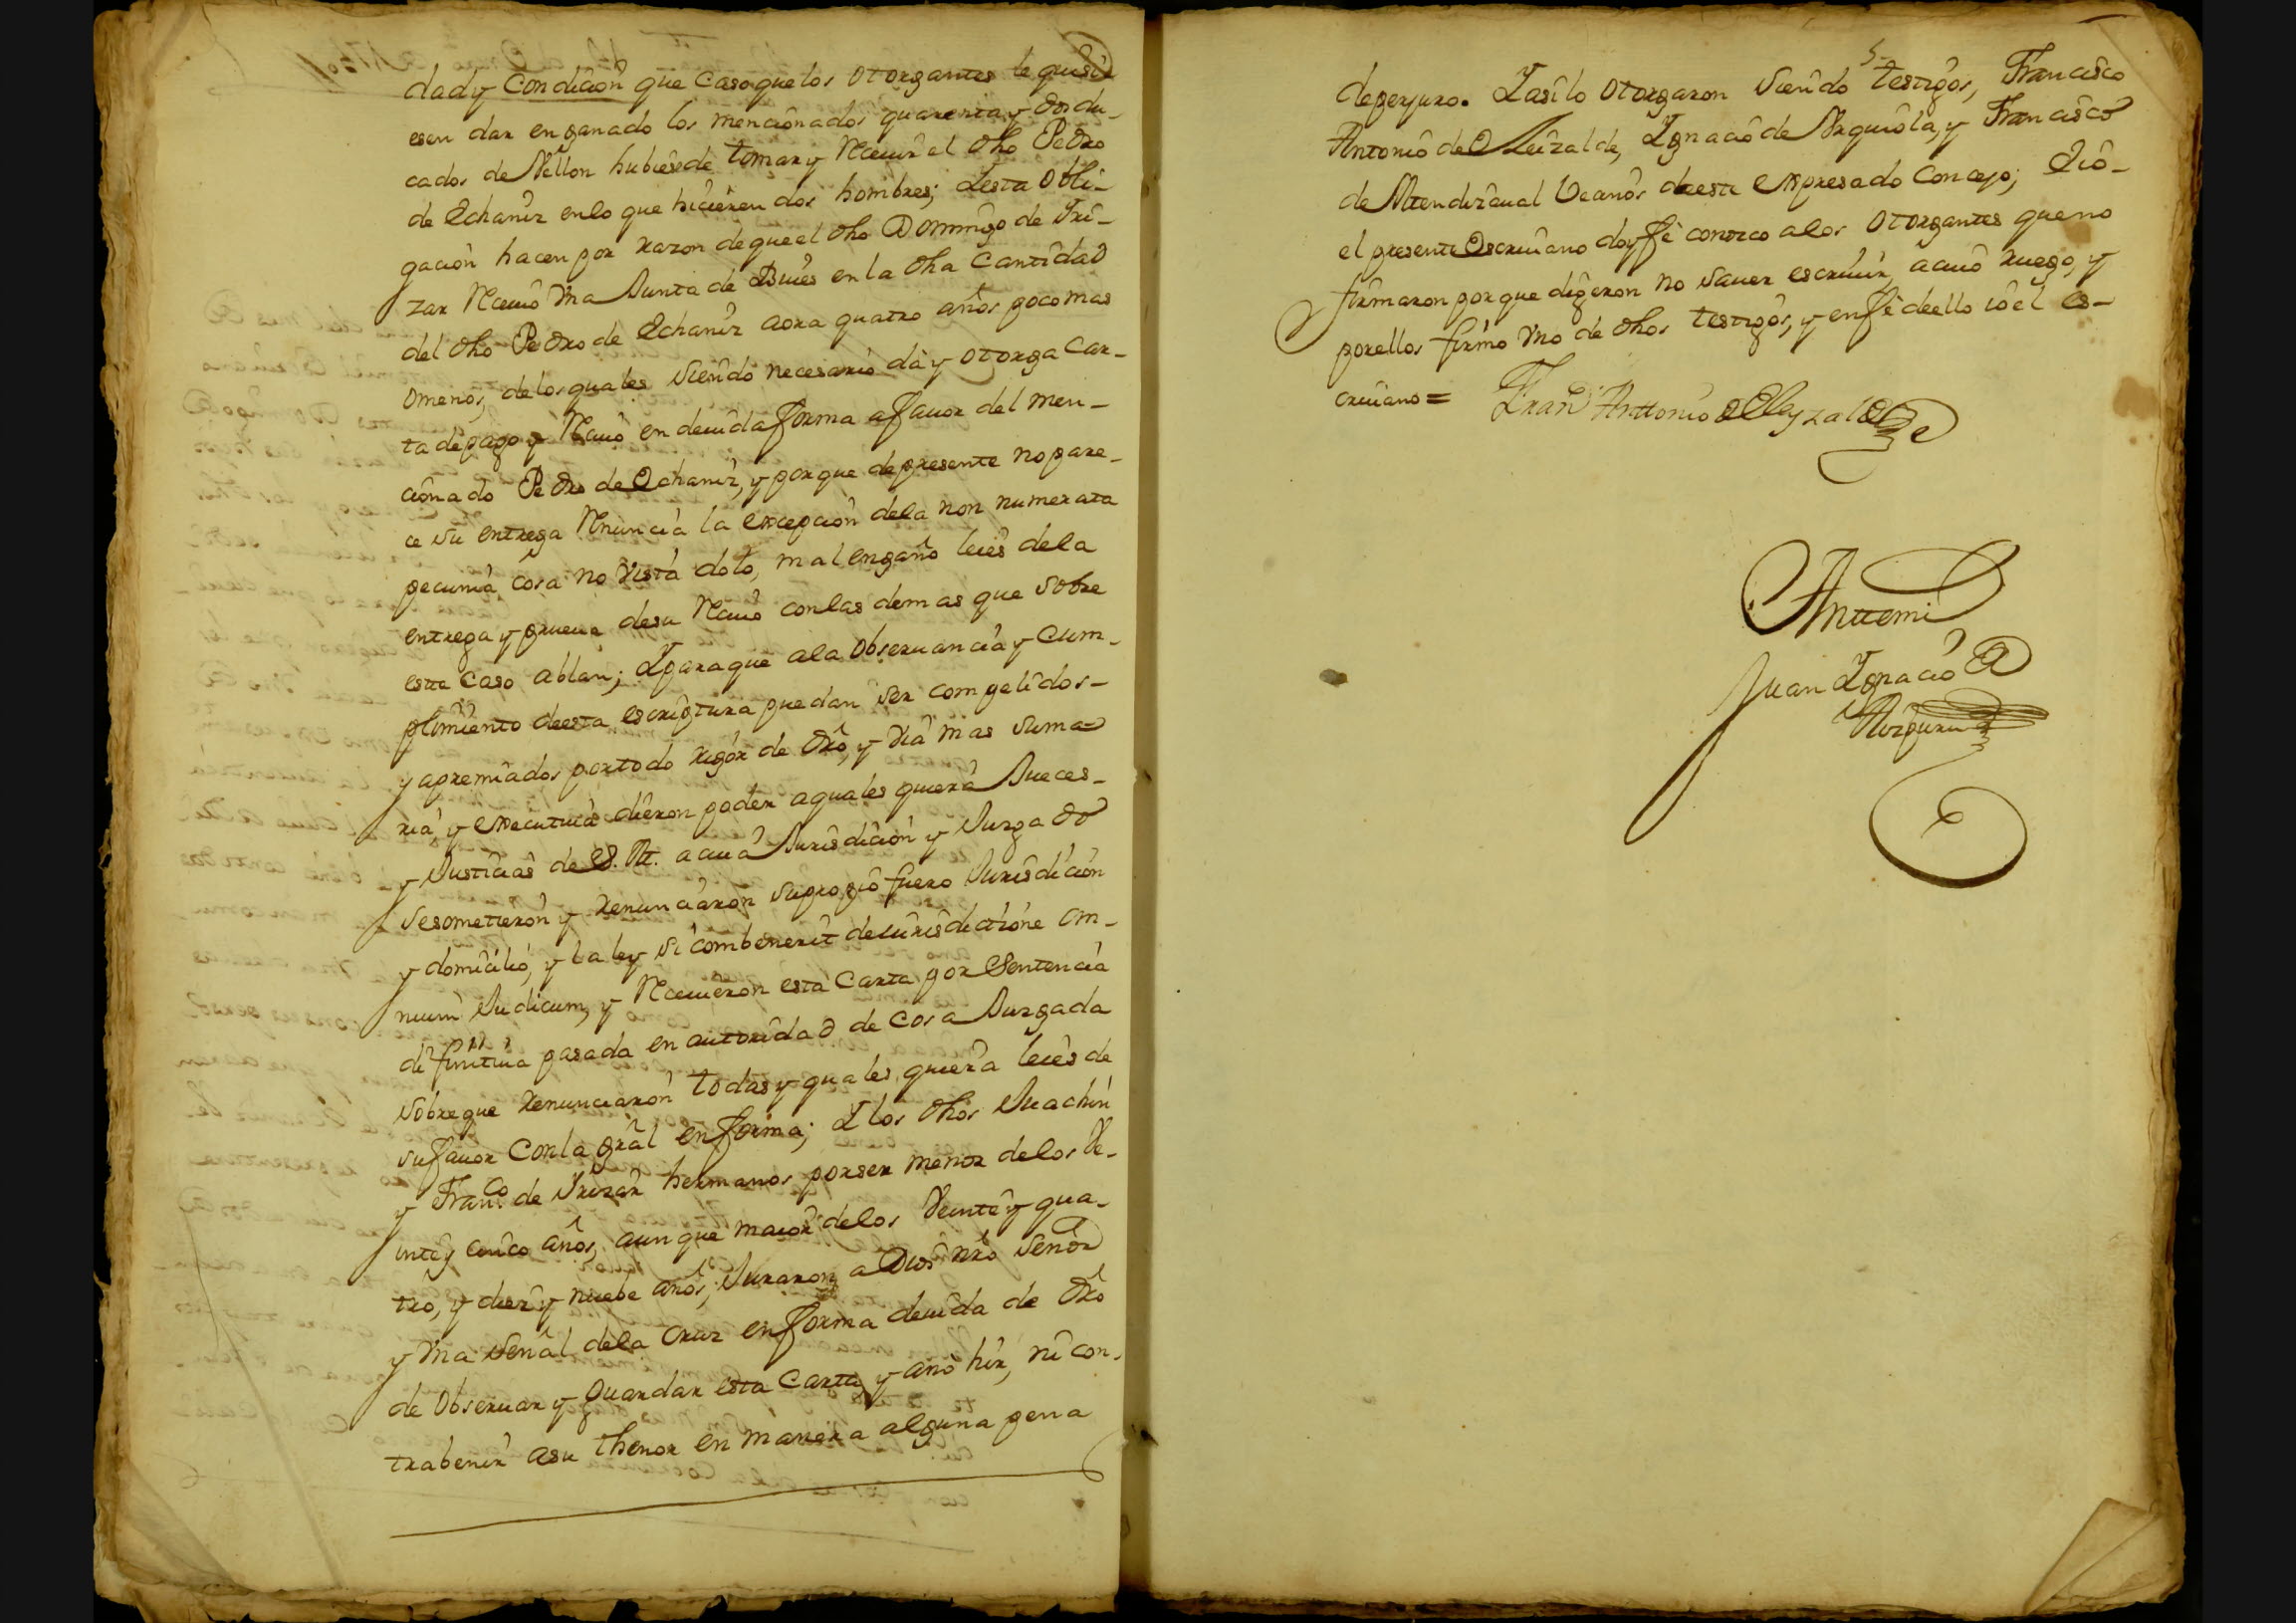 dad y Condicion que Caso que los otorgantes le quisi
esen dar en ganado los mencionados quarenta y dos du-
cados de Vellon hubiese de tomar y Reciuir el dho Pedro
de Echaniz en lo que hicieren dos hombres; Y esta obli-
gacion hacen por razon de que el dho Domingo de Yri-
zar Reciuio Vna Junta de Bueis en la dha Cantidad
del dho Pedro de Echaniz aora quatro años poco mas
o menos, de los quales siendo necesario dá y otorga Car-
ta de pago y Reciuo en deuida forma a fauor del men-
cionado Pedro de Echaniz, y porque de presente no pare-
ce su entrega Renuncia la excepcion de la non numerata
pecunia cosa no vista dolo, mal engaño leies de la
entrega y prueua de su Reciuo con las demas que sobre
este Caso ablan; Y para que a la obseruancia y Cum-
plimiento de esta escriptura puedan ser compelidos-
y apremiados por todo rigor de dro, y via mas suma=
ria, y executiua dieron poder a quales quiera Jueces-
y Justicias de S. M. a cuia Jurisdicion y Juzgado
se sometieron y renunciaron su propio fuero Jurisdicion
y domicilio, y la ley si combenerit de iurisdictione om-
nium Judicum, y Reciuieron esta Carta por Sentencia
difinitiua pasada en autoridad de Cosa Juzgada
sobre que renunciaron todas y quales quiera leies de
su fauor Con la gral en forma; Y los dhos Juachin
y Franco. de Yrizar hermanos por ser menor de los Ve-
inte y cinco años, aunque maior de los Veinte y qua-
tro, y diez y nuebe años; Juraron a Dios nro Señor
y Vna Señal de la Cruz en forma deuida de dro
de Obseruar y guardar esta Carta, y a no hir, ni con-
trabenir a su thenor en manera alguna pena
de perjuro. Y asi lo otorgaron siendo testigos, Francisco
Antonio de Leizalde, Ygnacio de Vrquiola, y Francisco
de Mendizaual Vecinos de este expresado Concejo; E io-
el presente Escriuano doy fé conozco a los otorgantes que no
firmaron por que digeron no sauer escriuir, a cuio ruego, y
por ellos firmó Vno de dhos testigos, y en fé de ello io el es-
criuano =
Fran Anttonio de Leyzalde
Anttemi
Juan Ygnacio de
Aizpuru